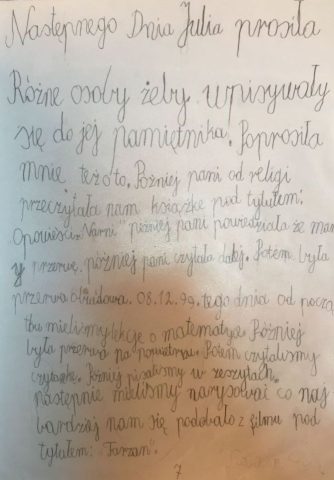 Następnego Dnia Julia prosiła
Różne osoby żeby wpisywały
się do jej pamiętnika. Poprosiła
mnie też o to. Pózniej pani od religi
przeczytała nam książkę pod tytułem:
Opowieści z Narni" pózniej pani powiedziała że mam
y przerwe. pózniej pani czytała dalej. Potem była
przerwa obiadowa. 08.12.99. tego dnia od począ
tku mieliśmy lekcje o matematyce. Pózniej
była przerwa na powietrzu. Potem czytaliśmy
czytankę. Pózniej pisaliśmy w zeszytach.
następnie mieliśmy narysować co naj
bardziej nam się podobało z filmu pod
tytułem: "Tarzan".
7